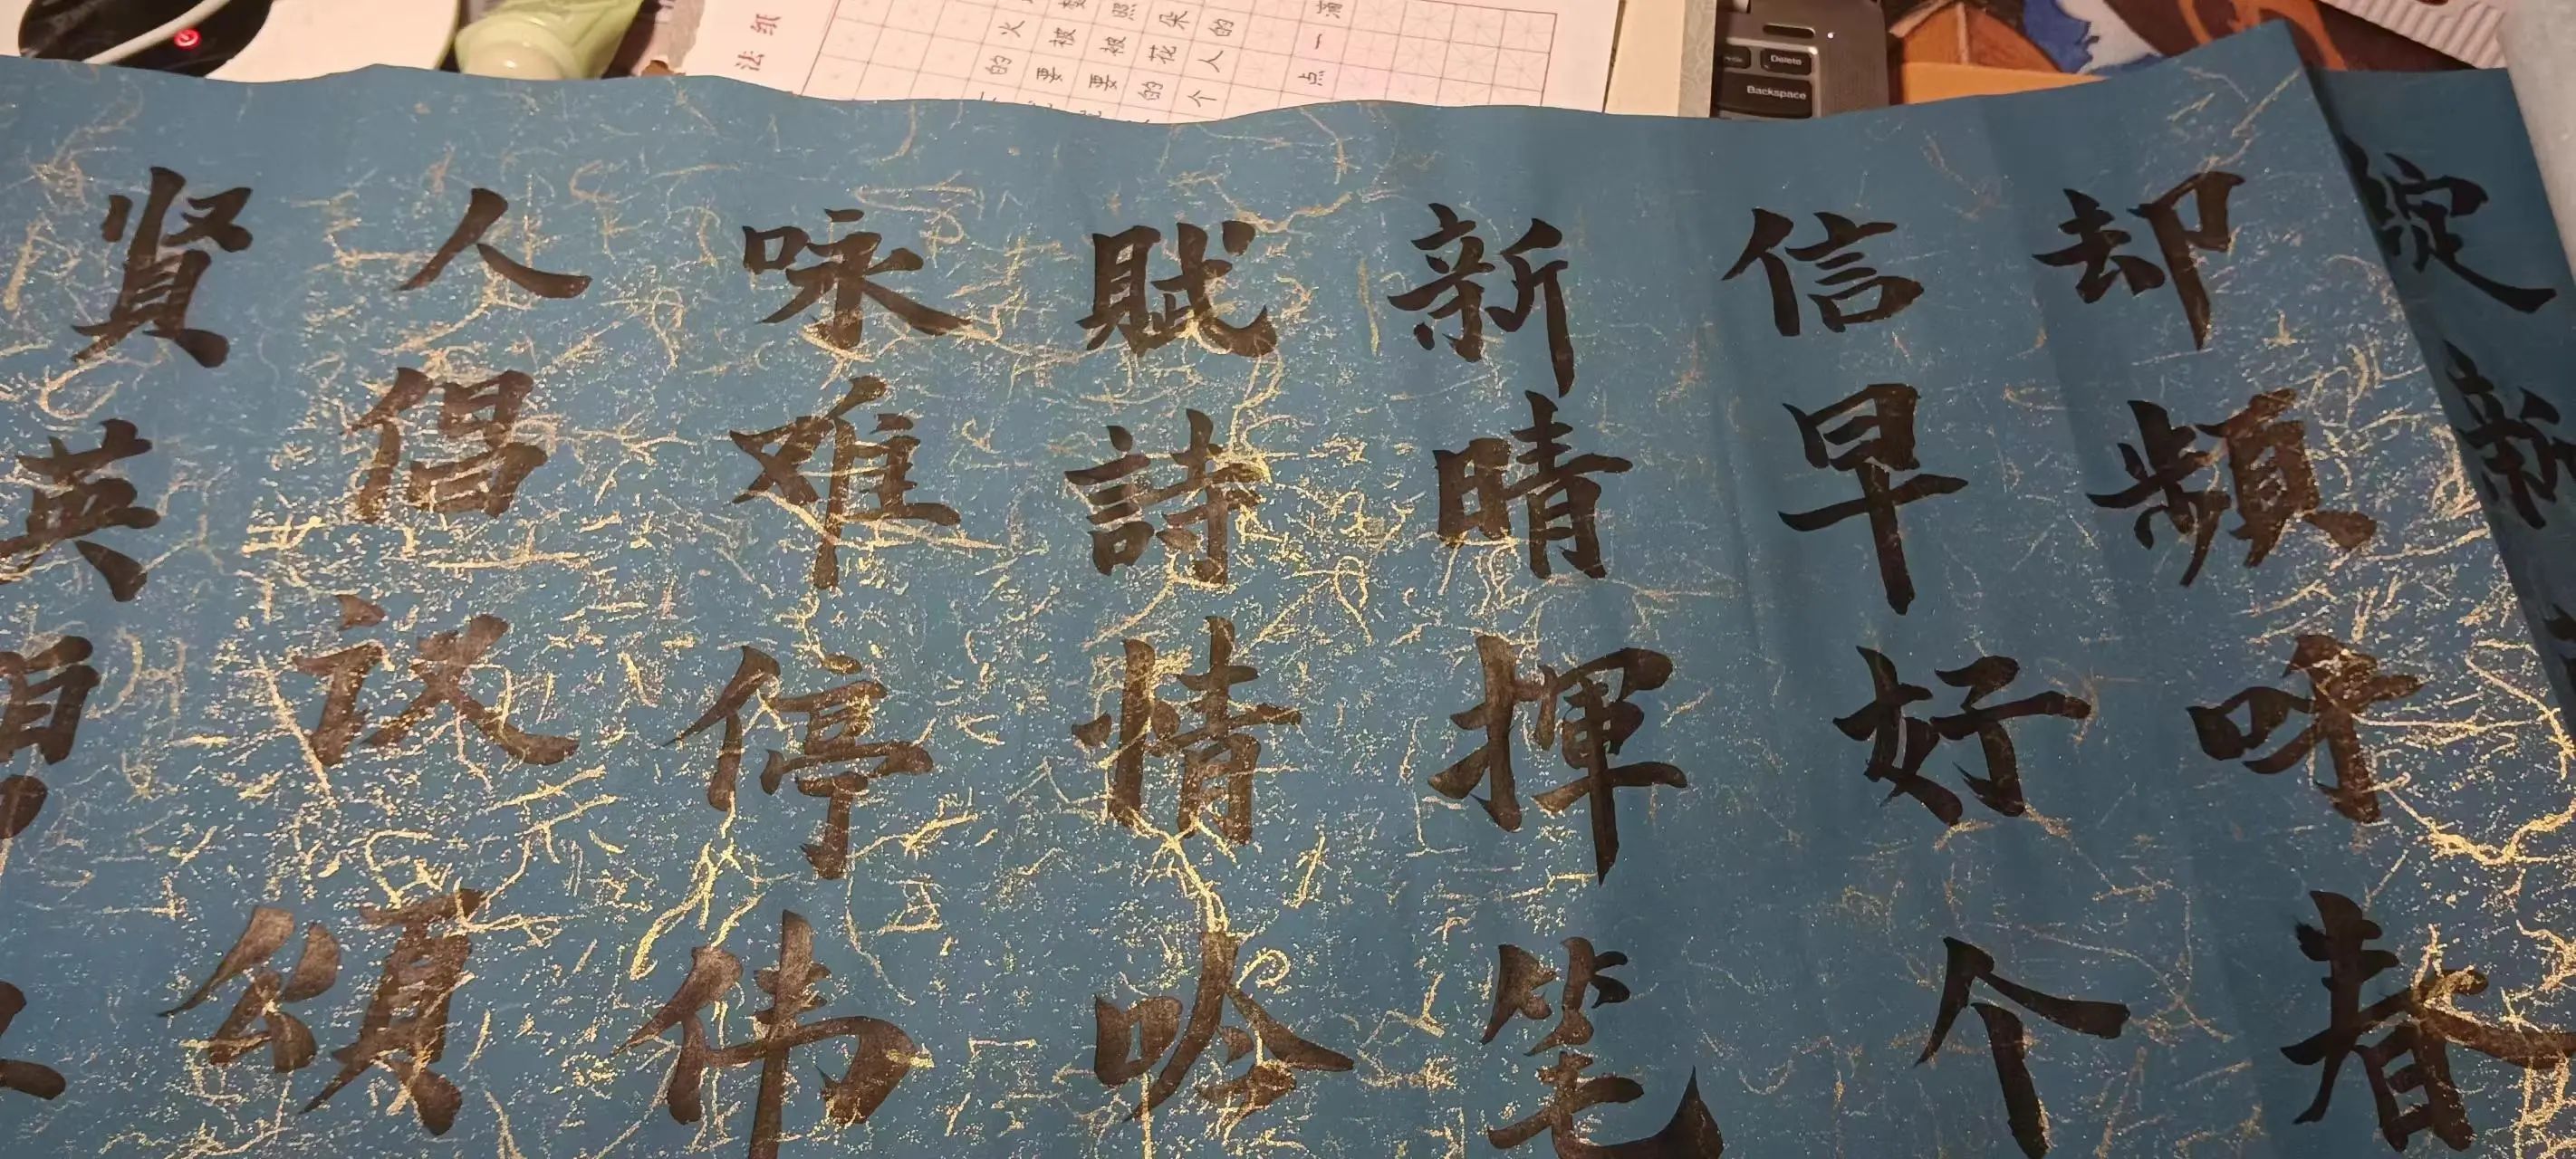 绽新
却頻呼春
信早好个
新晴揮笔
賦詩情吟
咏难停伟
人倡頌
賢英
法纸
的火
要被
要被照
的花朵
个人的
点一滴
Delete
Backspace